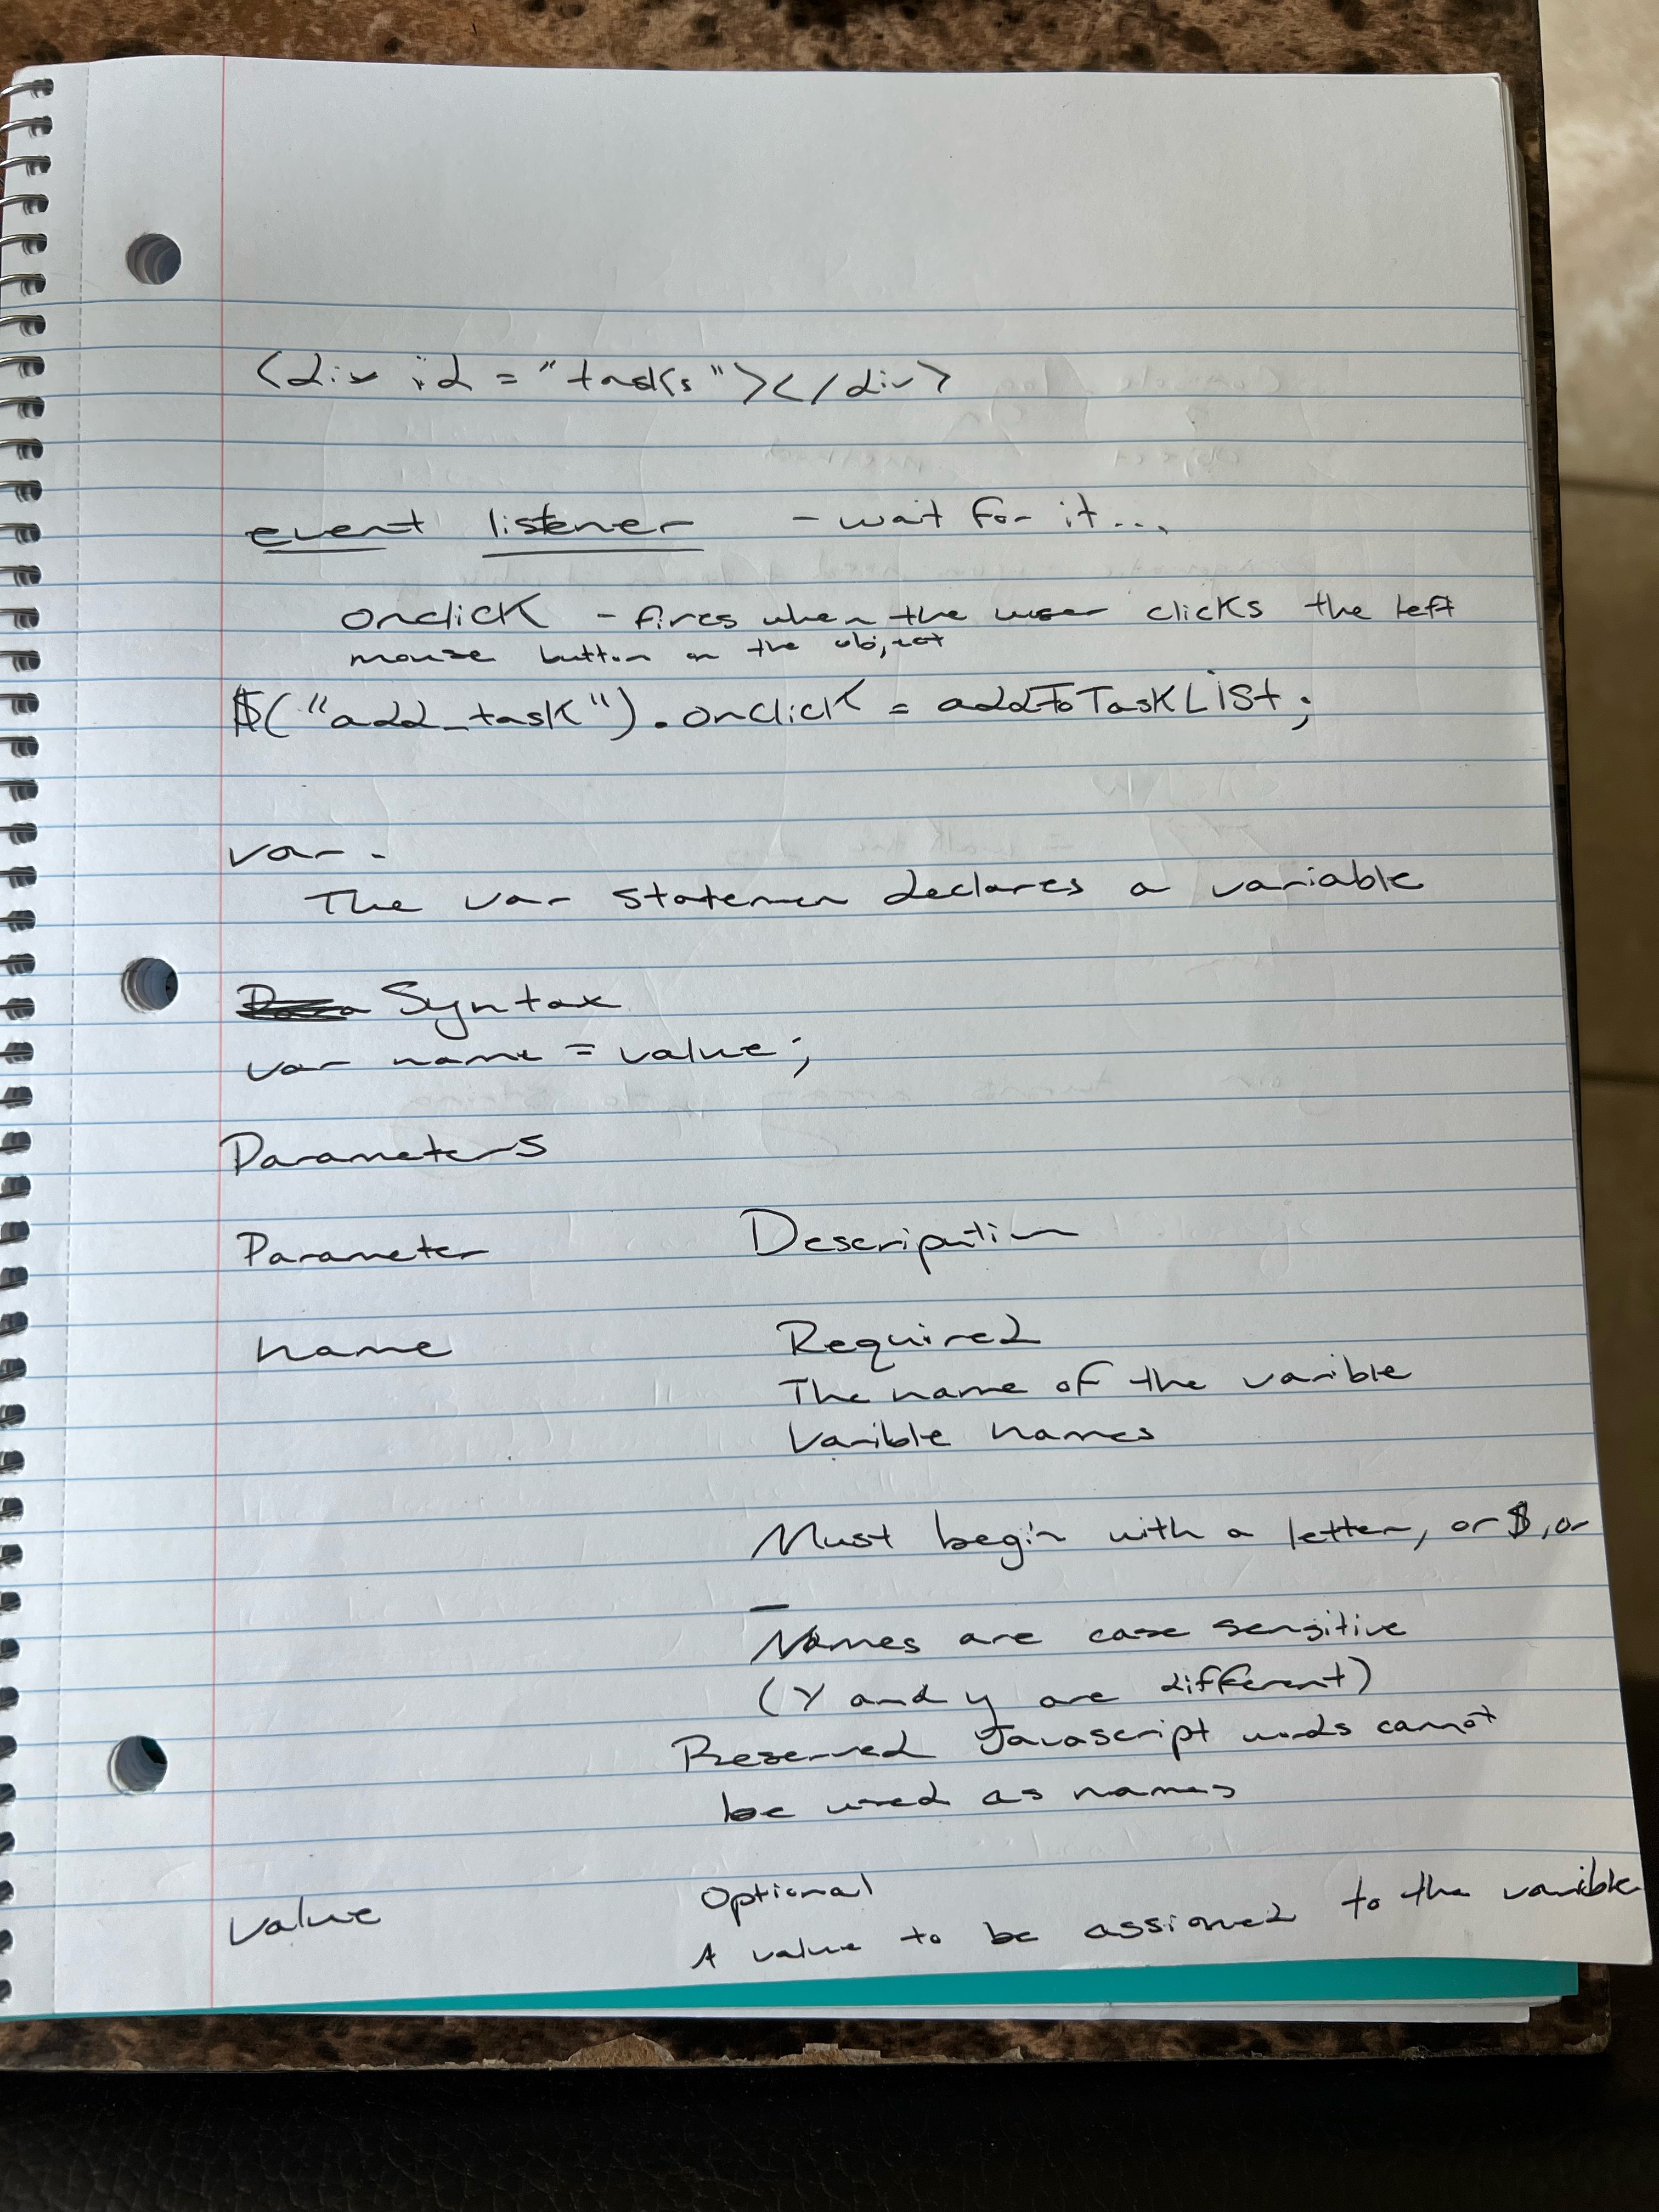 <div id = "tasks"></div>
event listener - wait for it...
onclick - fires when the user clicks the left
mouse button on the object
$("add_task").onclick = addToTaskList;
var -
The var statemen declares a variable
Syntax
var name = value;
Parameters
Parameter Description
name Required
The name of the varible
Varible names
Must begin with a letter, or $, or
_
Names are case sensitive
(Y and y are different)
Reserved Javascript words cannot
be used as names
value Optional
A value to be assigned to the varible